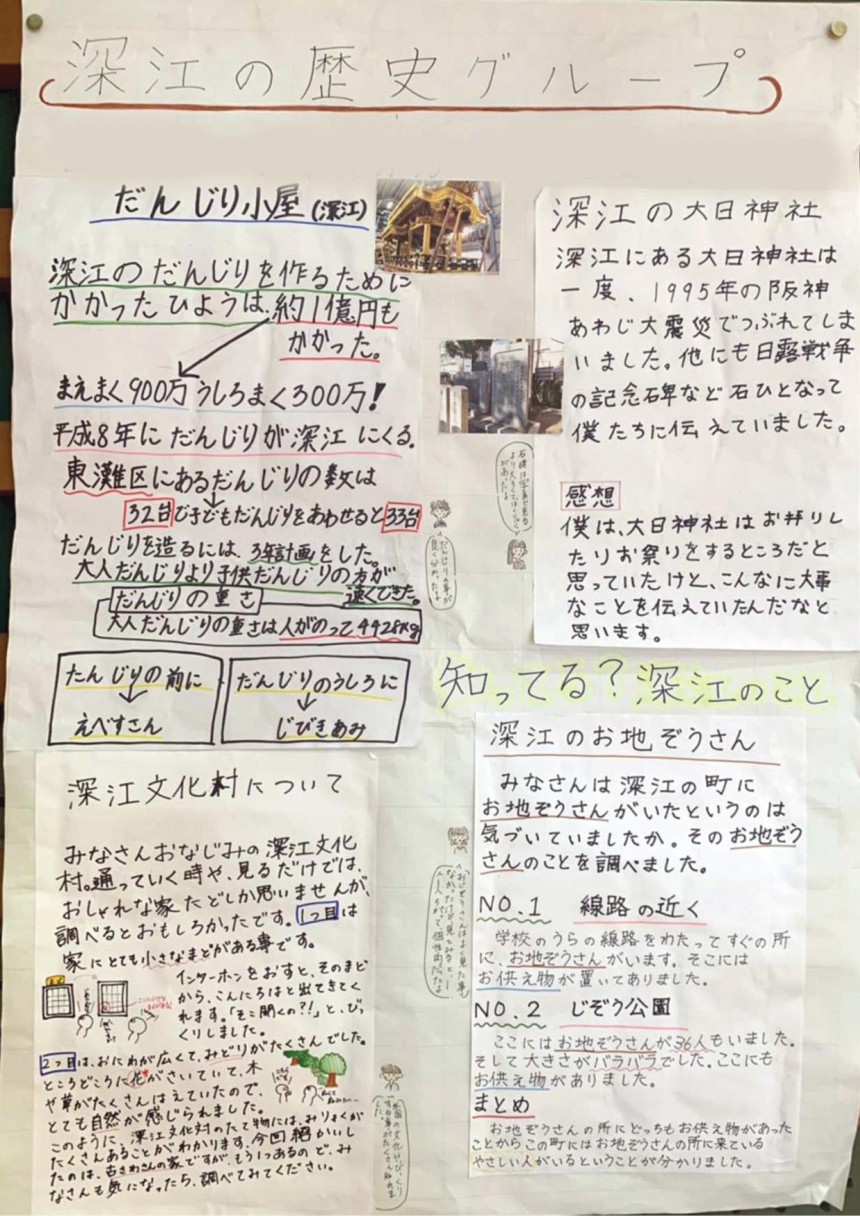 深江の歴史グループ
だんじり小屋(深江)
深江のだんじりを作るために
かかったひようは、約1億円も
かかった。
まえまく900万うしろまく300万!
平成8年にだんじりが深江にくる。
東灘区にあるだんじりの数は
32台で子どもだんじりをあわせると33台
だんじりを造るには、3年計画をした。
大人だんじりより子供だんじりの方が
速くできた。
だんじりの重さ
大人だんじりの重さは人がのって4428kg
たんじりの前に
↓
えべすさん
だんじりのうしろに
↓
じびきあみ
深江の大日神社
深江にある大日神社は
一度、1995年の阪神
あわじ大震災でつぶれてしま
いました。他にも日露戦争
の記念碑など石ひとなって
僕たちに伝えていました。
感想
僕は、大日神社はお参りし
たりお祭りをするところだと
思っていたけと、こんなに大事
なことを伝えていたんだなと
思います。
だんじりの事が
良く分かったよ
知ってる?深江のこと
深江文化村について
みなさんおなじみの深江文化
村。通っていく時や、見るだけでは、
おしゃれな家たどしか思いませんが、
調べるとおもしろかったです。1つ目は
家にとても小さなまどがある事です。
インターホンをおすと、そのまど
から、こんにちはと出てきてく
れます。「そこ開くの?!」と、びっ
くりしました。
2つ目は、おにわが広くて、みどりがたくさんでした。
ところどころに花がさいていて、木
や草がたくさんはえていたので、
とても自然が感じられました。
このように、深江文化村のたて物には、みりょくが
たくさんあることがわかります。今回紹かいし
たのは、古さわさんの家ですが、もう1つあるので、み
なさんも気になったら、調べてみてください。
深江のお地ぞうさん
みなさんは深江の町に
お地ぞうさんがいたというのは
気づいていましたか。そのお地ぞう
さんのことを調べました。
NO.1 線路の近く
学校のうらの線路をわたってすぐの所
に、お地ぞうさんがいます。そこには
お供え物が置いてありました。
NO.2 じぞう公園
ここにはお地ぞうさんが36人もいました。
そして大きさがバラバラでした。ここにも
お供え物がありました。
まとめ
お地ぞうさんの所にどっちもお供え物があった
ことからこの町にはお地ぞうさんの所に来ている
やさしい人がいるということが分かりました。